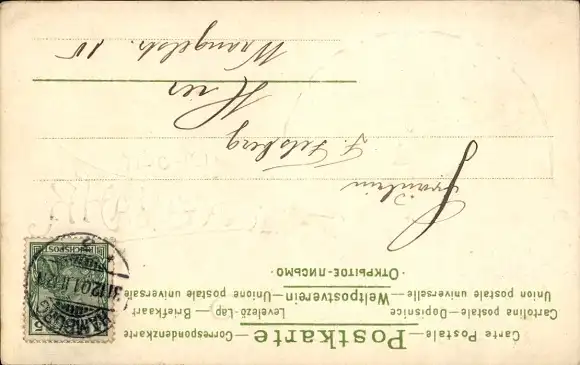 Postkarte
Carte Postale — Correspondenzkarte
Cartolina postale — Dopisnice — Levelező-Lap — Briefkaart
Union postale universelle — Weltpostverein — Unione postale universale
ОТКРЫТОЕ-ПИСЬМО
REICHSPOST
HAMBURG
31.12.01
Fräulein
F. Felsberg
Hier
Wrangelstr. 15